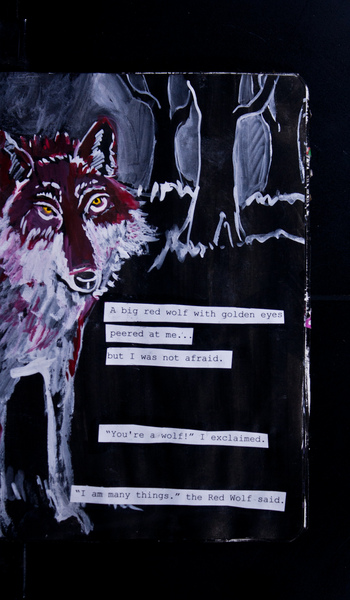 A big red wolf with golden eyes
peered at me...
but I was not afraid.
"You're a wolf!" I exclaimed.
"I am many things." the Red Wolf said.